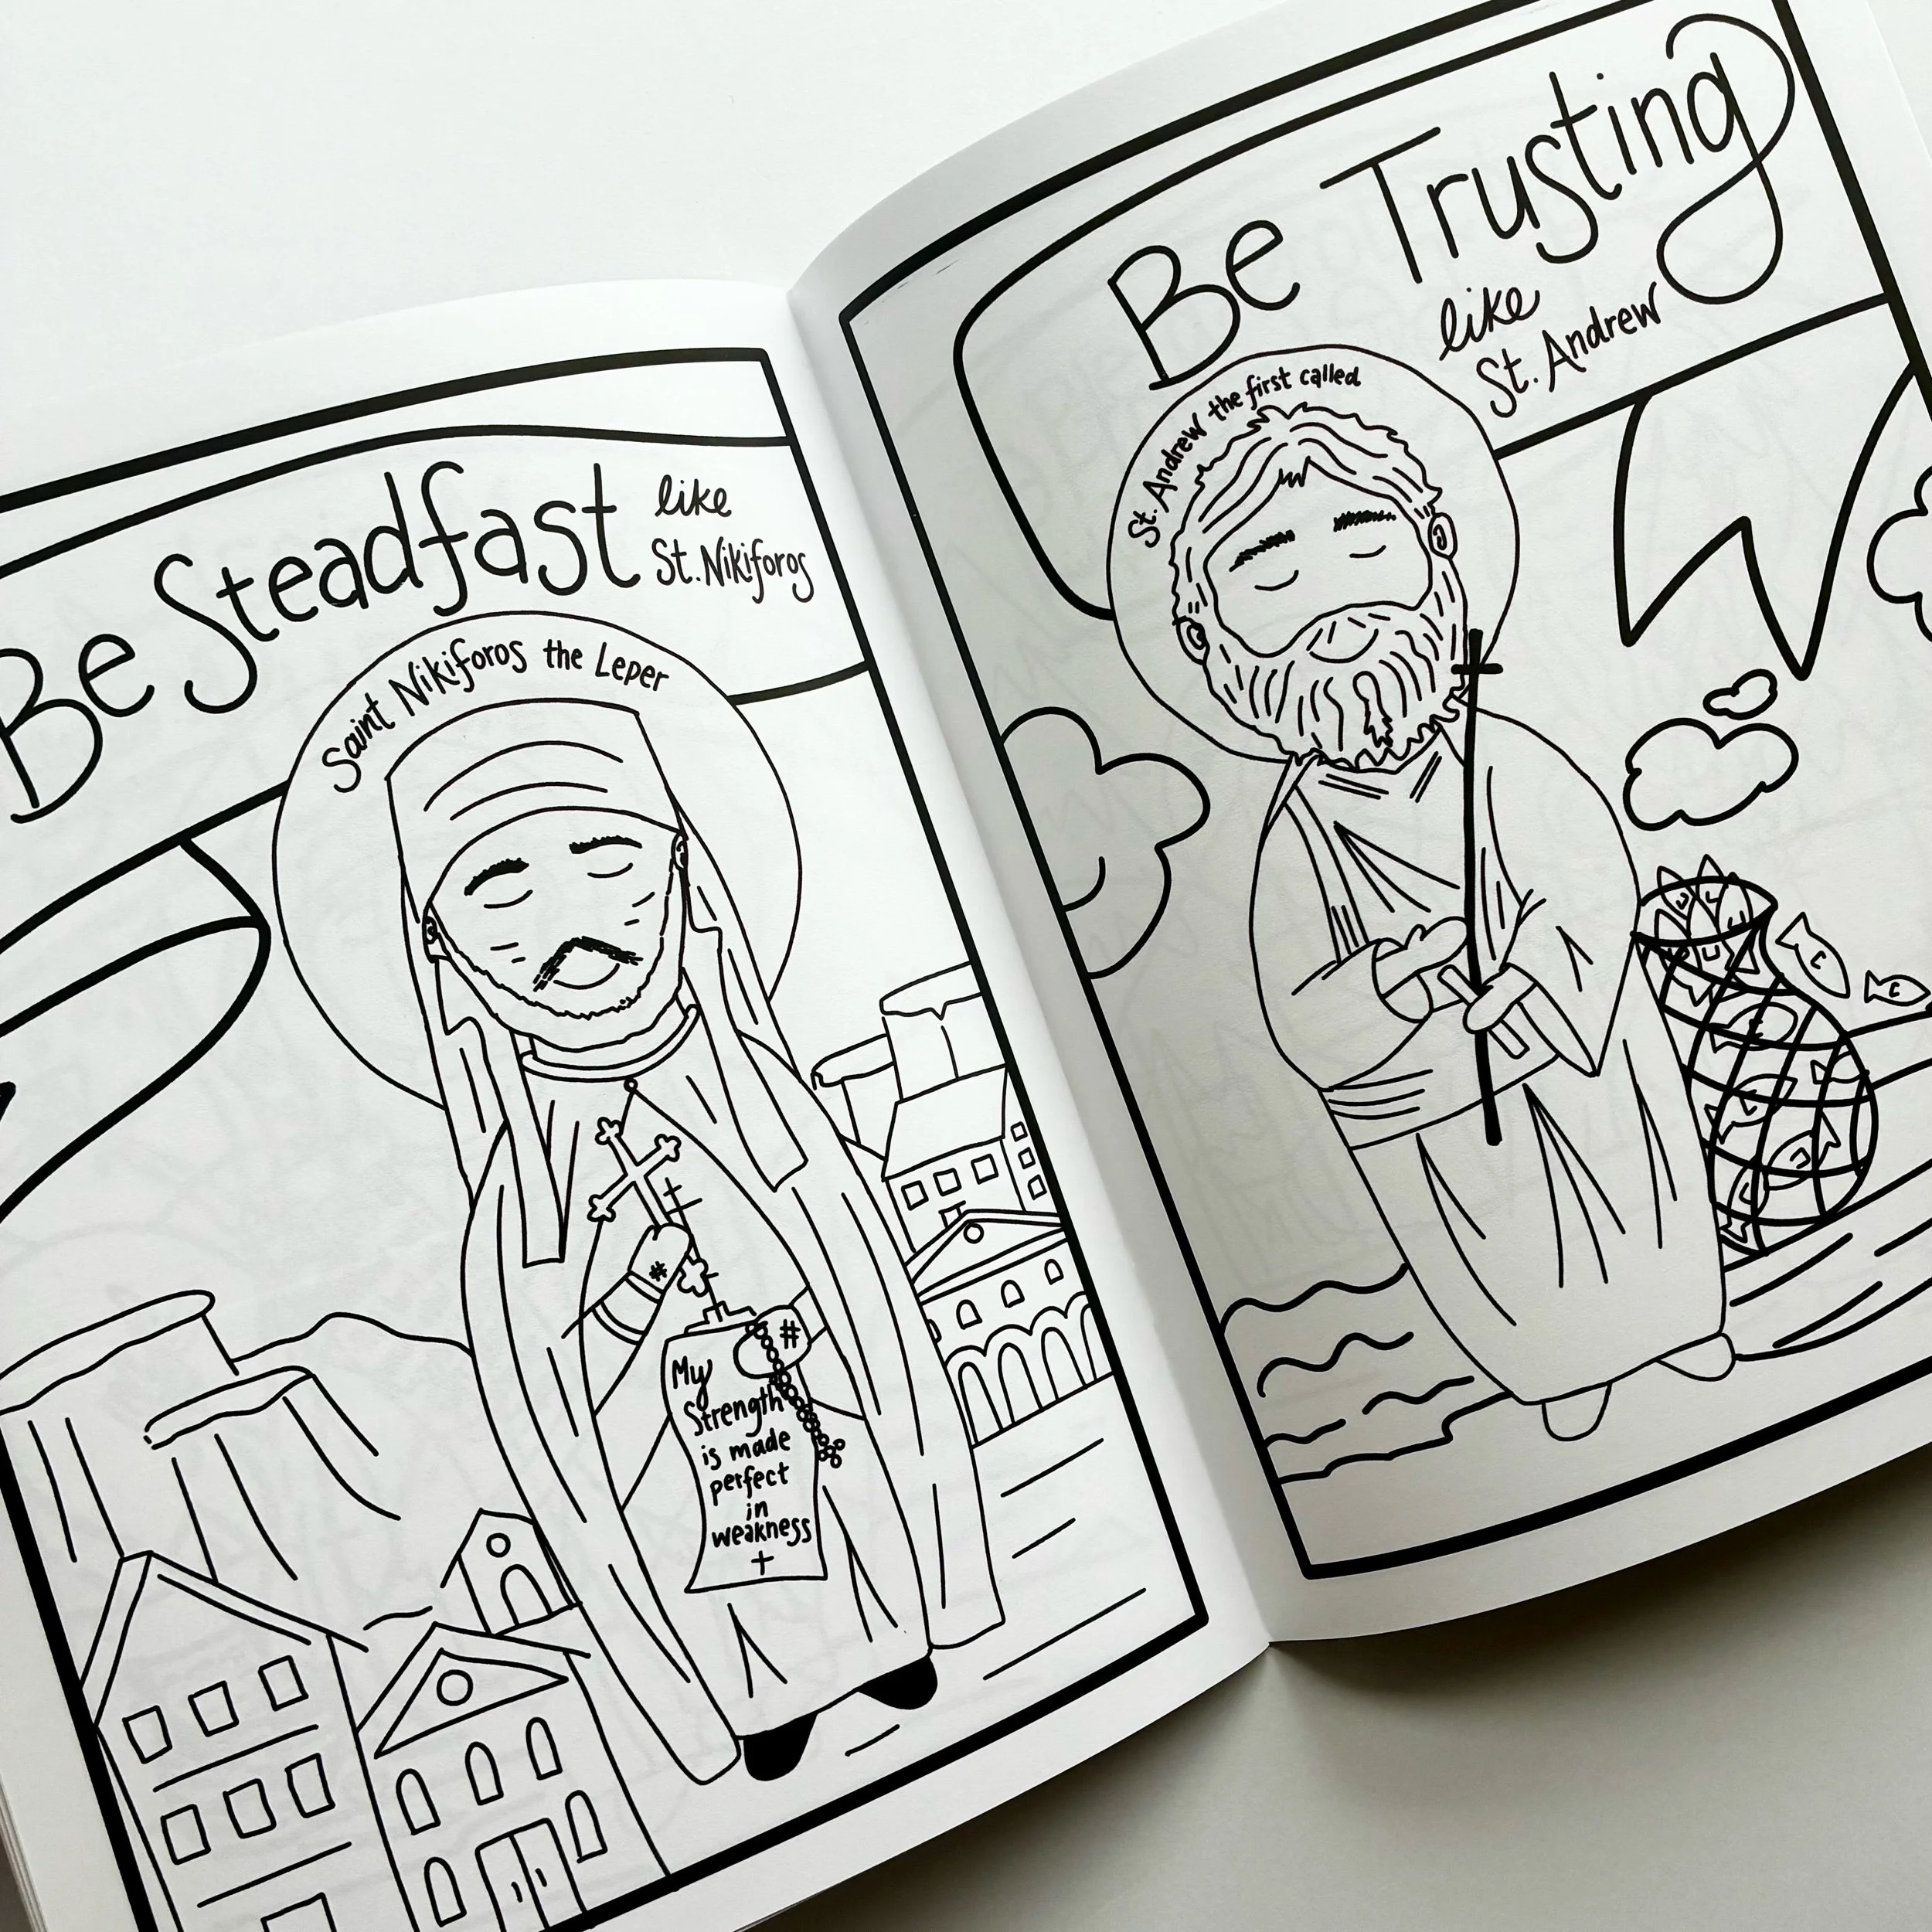 Be Steadfast
like
St. Nikiforos
Saint Nikiforos the Leper
My
Strength
is made
perfect
in
weakness
Be Trusting
like
St. Andrew
St. Andrew the first called